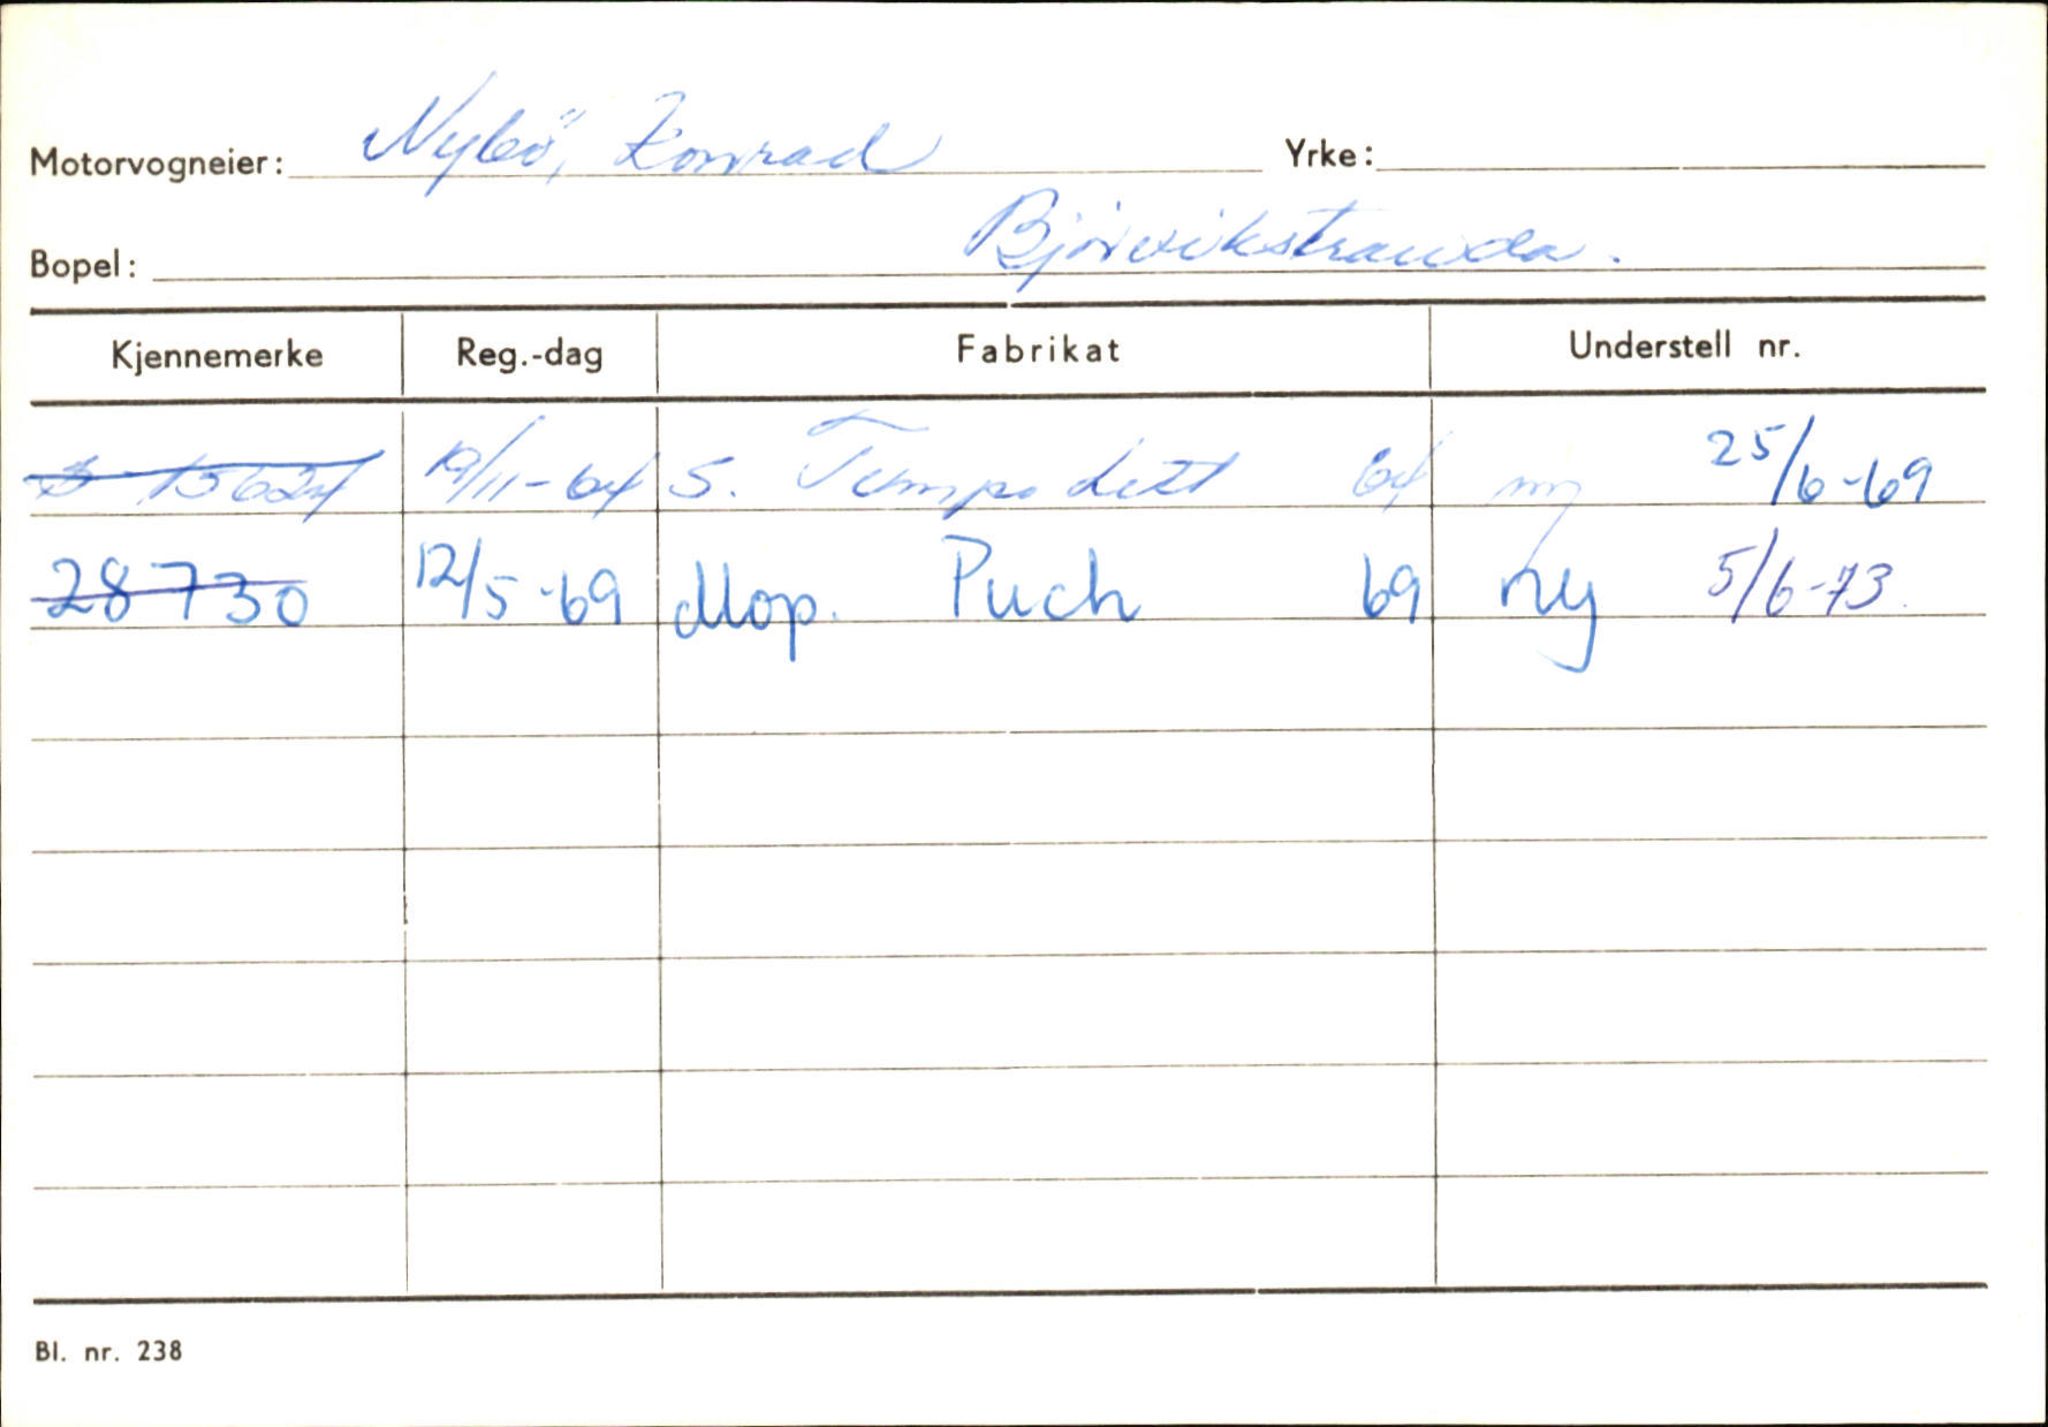 Motorvogneier: Nybö, Konrad Yrke:
Bopel: Bjørvikstranda.
Kjennemerke Reg.-dag Fabrikat Understell nr.
S-15624 19/11-64 S. Tempo Lett 64 ny 25/6-69
28730 12/5-69 Mop. Puch 69 ny 5/6-73.
Bl. nr. 238